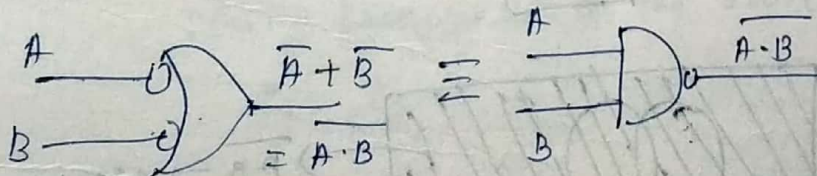 A
B
A̅ + B̅
= \overline{A·B}
≡
A
B
\overline{A·B}